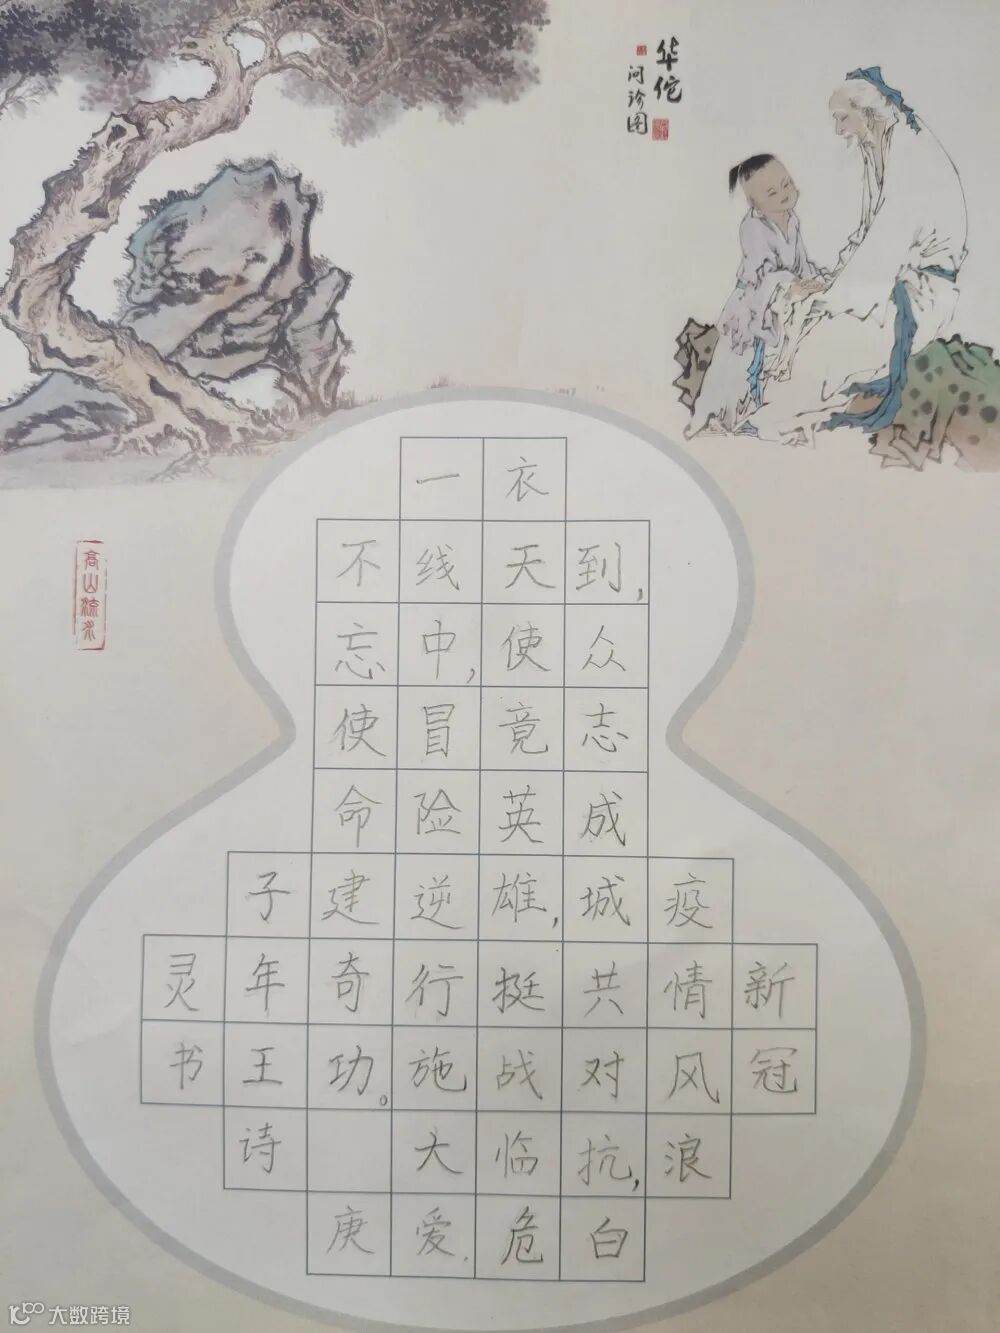 华佗
问诊图
高山流水
新冠
疫情风浪
到,众志成城共对抗,白
衣天使竟英雄,挺战临危
一线中,冒险逆行施大爱.
不忘使命建奇功。庚
子年王诗
灵书
大数跨境